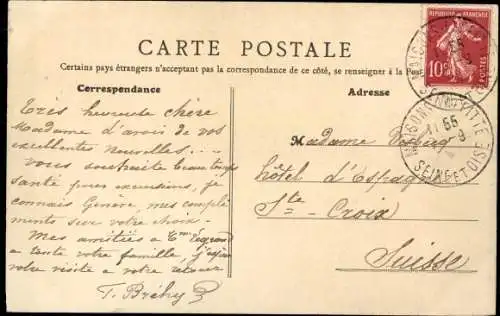 CARTE POSTALE
Certains pays étrangers n'acceptant pas la correspondance de ce côté, se renseigner à la Post
Correspondance
Adresse
REPUBLIQUE FRANÇAISE
10c
POSTES
MAISONS-LAFFITTE
SEINE-ET-OISE
Très heureuse chère
Madame d'avoir de vos
excellentes nouvelles...
vous souhaite beau temps
santé pour excursions, je
connais Genève mes compli
ments sur votre choix.
Mes amitiés a
a toute votre famille,
votre visite a votre retour
T. Bréhy
Madame
hôtel d'Espagne
Ste-Croix
Suisse